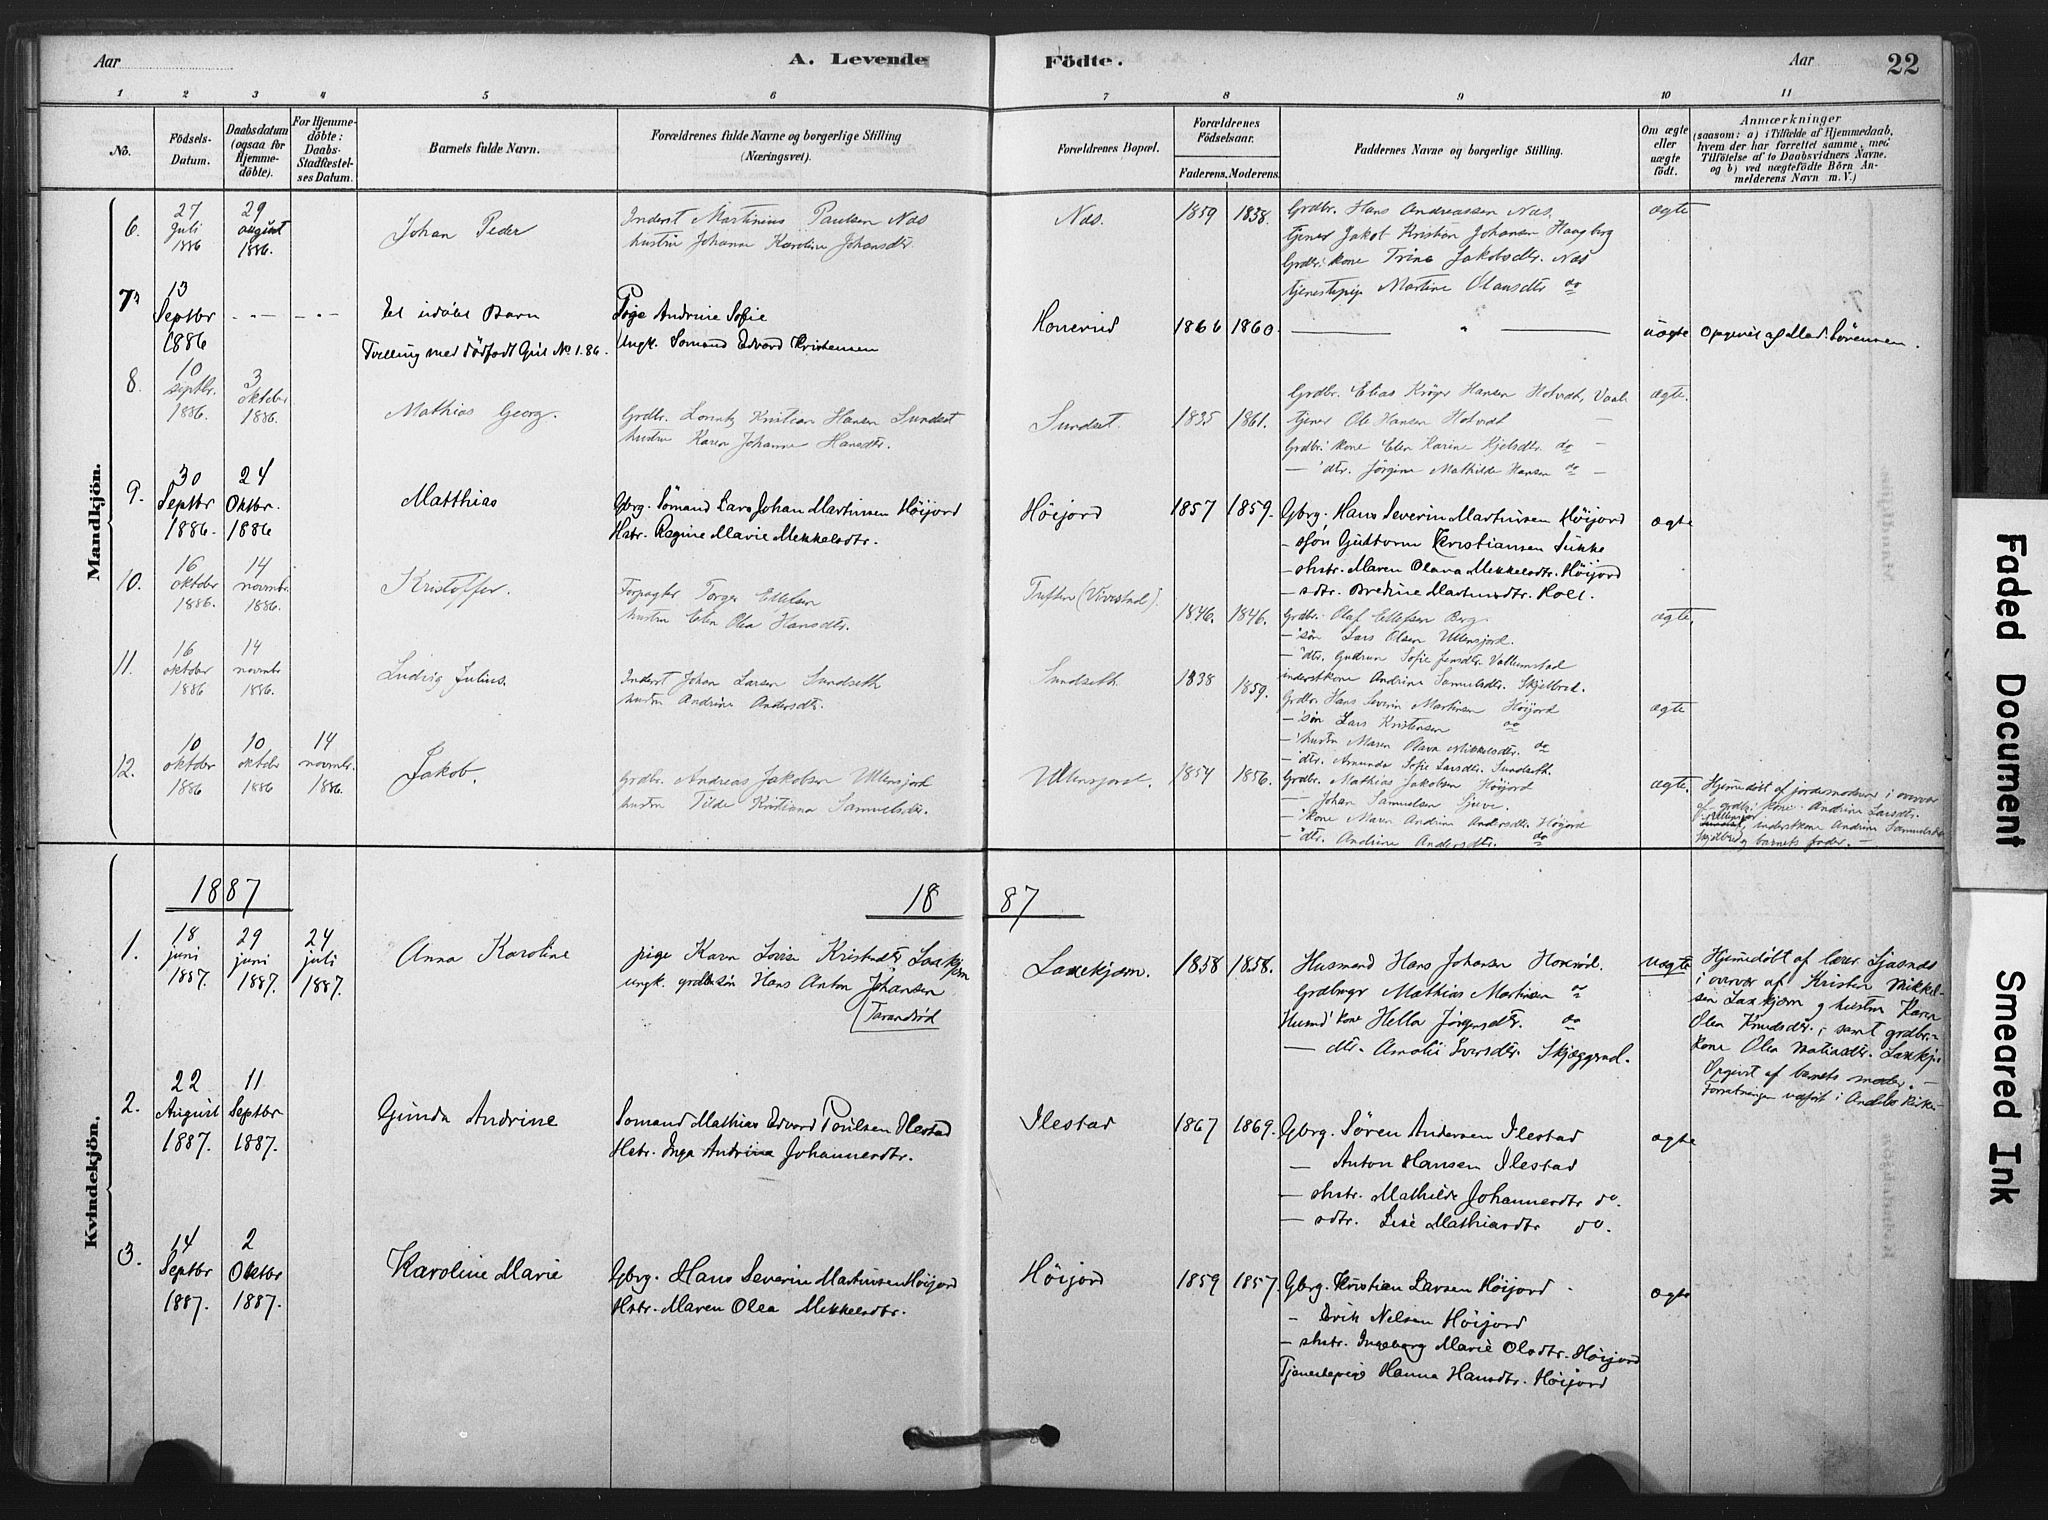 Aar
A. Levende
Födte.
Aar
22
1 2 3 4 5 6 7 8 9 10 11
No.
Födsels-
Datum.
Daabsdatum
(ogsaa for
Hjemme-
döbte).
For Hjemme-
döbte:
Daabs-
Stadfæstel-
ses Datum.
Barnets fulde Navn.
Forældrenes fulde Navne og borgerlige Stilling
(Næringsvei).
Forældrenes Bopæl.
Forældrenes
Födselsaar.
Faderens. Moderens.
Faddernes Navne og borgerlige Stilling.
Om ægte
eller
uægte
födt.
Anmærkninger
(saasom: a) i Tilfælde af Hjemmedaab,
hvem der har forrettet samme, med
Tilföielse af to Daabsvidners Navne.
og b) ved uægtefödte Börn An-
melderens Navn m. V.)
Mandkjön.
6.
27
Juli
1886
29
august
1886.
Johan Peder
Inderst Martinius Paulsen Næs
hustru Johanne Karoline Johansdtr.
Næs.
1859 1858.
Grdbr. Hans Andreassen Næs.
tjener Jakob Kristian Johansen Haugberg
Grdbr. kone Trine Jakobsdtr. Næs
tjenestepige Martine Olausdtr do
ægte
7
13
Septbr
1886
Et udöbt Barn
Tvilling med dödfödt Gut No 1. 86.
Pige Andrine Sofie
Ungk. Sömand Edvard Kristensen
Honerud
1866 1860.
uægte
Opgivet af Mad. Sörensen.
8.
10
septbr.
1886.
3
oktober
1886.
Mathias Georg.
Grdbr. Lorentz Kristian Hansen Sundset
hustru Karen Johanne Hansdtr.
Sundset.
1835 1861.
Grdbr. Elias Kröger Hansen Hotvedt, Vaale
tjener Ole Hansen Hotvedt
Grdbr. kone Elen Karine Kjelsdtr. do
— dtr. Jörgine Mathilde Hansen do
ægte.
9.
30
Septbr
1886.
24
Oktbr.
1886
Matthias
Gbrg. Sömand Lars Johan Martinsen Höijord
Hstr. Regine Marie Mekkelsdtr.
Höijord
1857 1859.
Gbrg. Hans Severin Martinsen Höijord
— sön Guttorm Kristiansen Sukke
— shstr. Maren Olava Mekkelsdtr. Höijord
— sdtr. Bredine Martinsdtr. Holt.
ægte
10.
16
oktober
1886.
14
novmbr.
1886.
Kristoffer.
Forpagter Torger Ellefsen
hustru Elen Olea Hansdtr.
Tuften (Vivestad).
1846. 1846.
Grdbr. Olaf Ellefsen Berg.
— sön Lars Olsen Ullensjord.
— dtr. Gudrun Sofie Jensdtr. Vallumstad
inderstkone Andrine Samuelsdtr. Skjelbred.
ægte.
11.
16
oktober
1886
14
novmbr
1886.
Ludvig Julius.
Inderst Johan Larsen Sundseth
hustru Andrine Andersdtr.
Sundseth.
1838 1859.
Grdbr Hans Severin Martinsen Höijord
— sön Lars Kristensen do
— hustru Maren Olava Mikkelsdtr. do
— dtr. Amunda Sofie Larsdtr. Sundseth.
ægte
12.
10
oktober
1886
10
oktober
1886
14
novmbr.
1886.
Jakob.
Grdbr. Andreas Jakobsen Ullensjord
hustru Tilde Kristiana Samuelsdtr.
Ullensjord.
1854 1856.
Grdbr. Mathias Jakobsen Höijord
— Johan Samuelsen Sjuve.
— kone Maren Andrine Andersdtr. Höijord
— dtr. Andrine Andersdtr. do
ægte.
Hjemmedöbt af jordemoderen i overvær
af grdbr. kone Andrine Larsdtr.
Ullensjord, inderstkone Andrine Samuelsdtr
Skjelbred og barnets fader. —
Kvindekjön.
1887
18 87
1.
18
juni
1887.
29
juni
1887.
24
juli
1887.
Anna Karoline
pige Karen Lovise Kristensdtr Laxkjem
ungk. grdbrsön Hans Anton Johansen
(Tarandröd
Laxekjem.
1858 1858.
Husmand Hans Johansen Honeröd.
Grdbrugr Mathias Martinsen do
Husmd kone Hella Jörgensdtr. do
— dtr. Amalie Iversdtr. Skjæggerud.
uægte
Hjemmedöbt af lærer Sjaanes
i overvær af Kristen Mikkel-
sen Laxkjem og hustru Karen
Olea Knudsdtr., samt grdbr.
kone Olea Matiasdtr. Laxkjem
Opgivet af barnets moder. —
Forretningen udfört i Andebo Kirke.
2.
22
August
1887.
11
Septbr
1887.
Gunda Andrine
Sömand Mathias Edvard Poulsen Ilestad
Hstr. Inga Andrine Johannesdtr.
Ilestad
1867 1869.
Gbrg. Sören Andersen Ilestad
— Anton Hansen Ilestad
— shstr. Mathilde Johannesdtr do.
— sdtr. Lise Mathiasdtr do.
ægte
3.
14
Septbr
1887.
2
Oktbr
1887.
Karoline Marie
Gbrg. Hans Severin Martinsen Höijord
Hstr. Maren Olea Mekkelsdtr.
Höijord
1859 1857.
Gbrg. Kristian Larsen Höijord
— Erik Nelsen Höijord
— shstr. Ingeborg Marie Olsdtr. Höijord
Tjenestepige Hanna Hansdtr. Höijord
ægte
Faded Document
Smeared Ink